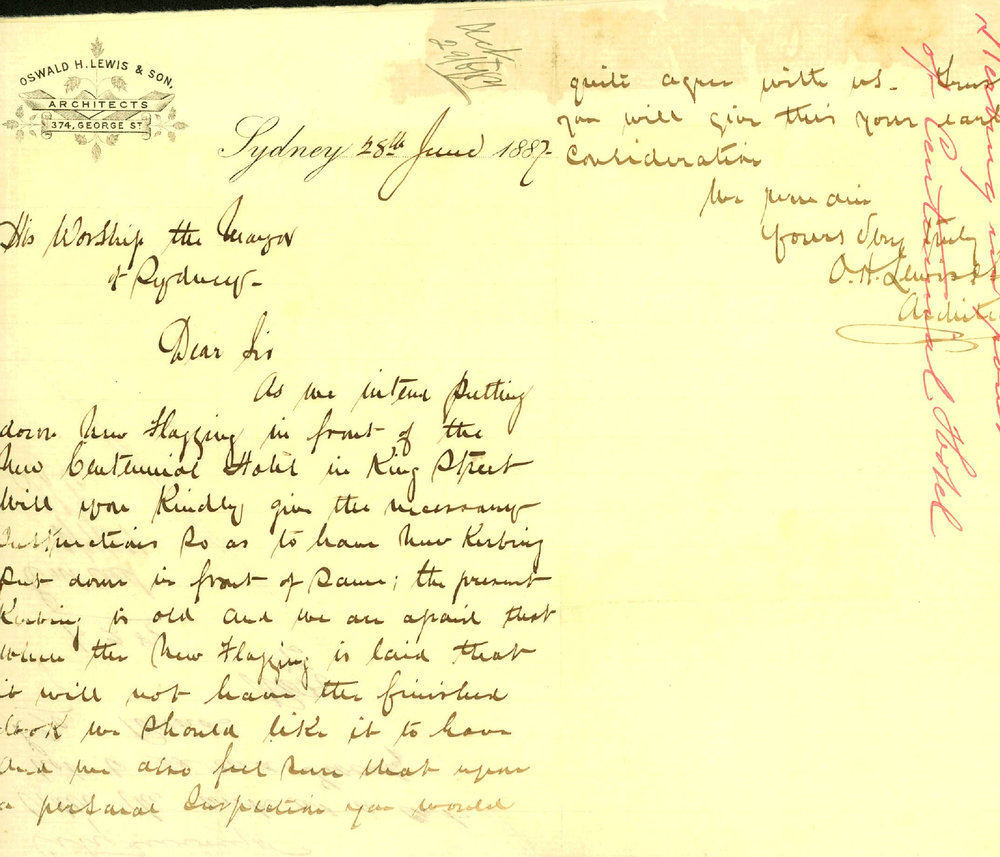 OSWALD H. LEWIS & SON,
ARCHITECTS
374, GEORGE ST
Sydney 28th June 1887.
His Worship the Mayor
of Sydney-
Dear Sir
As we intend putting
down New Flagging in front of the
New Centennial Hotel in King Street
Will you Kindly give the necessary
Instructions so as to have New Kerbing
put down in front of same; the present
Kerbing is old and we are afraid that
when the New Flagging is laid that
it will not have the finished
look we should like it to have
And we also feel sure that upon
a personal Inspection you would
quite agree with us-
you will give this your
Consideration
We remain
Yours Very truly
O.H. Lewis
of Centennial Hotel